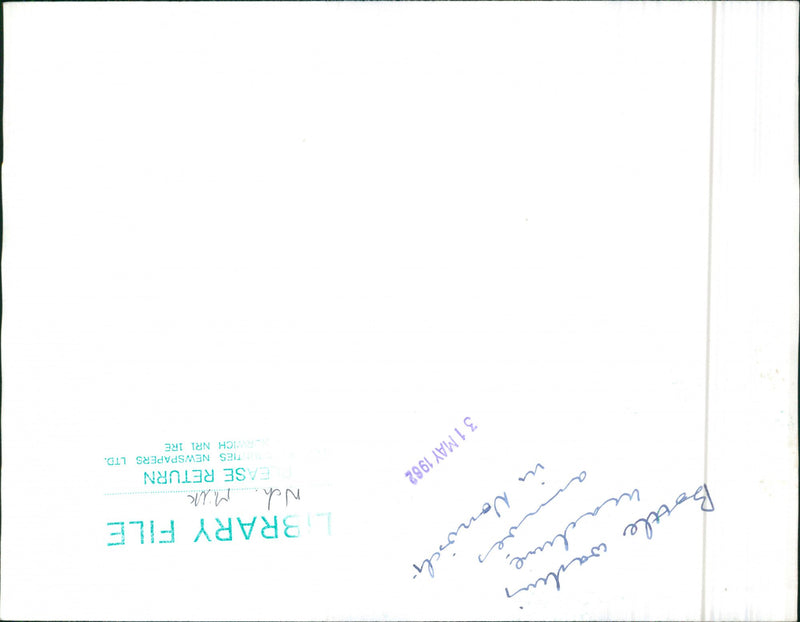 Bottle washing
machine
arrives
in Norwich
31 MAY 1962
LIBRARY FILE
Nch. Milk
PLEASE RETURN
COUNTIES NEWSPAPERS LTD.
NORWICH NR1 1RE